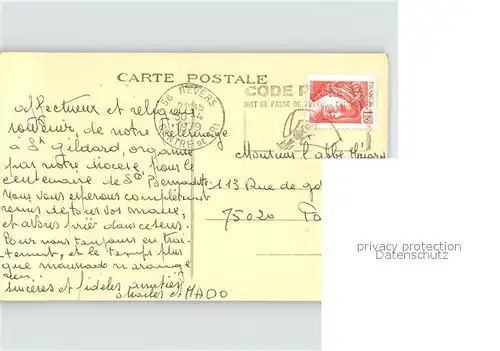 CARTE POSTALE
CODE POSTAL
MOT DE PASSE DE VOTRE COURRIER
58 NEVERS
21H45
30-4
1979
NIEVRE
FRANCE
1,20
affectueux et religieux
souvenir de notre pèlerinage
à St Gildard, organisé
par notre diocèse pour le
centenaire de Ste Bernadette
Nous vous espérons complètement
remis de tous vos maux,
et avons prié dans ce sens.
Pour nous toujours en trai-
tement, et le temps plus
que maussade n'arrange
rien.
sincères et fidèles amitiés
et MADO
Monsieur l'abbé
113 Rue de
75020 Pa
privacy protection
Datenschutz